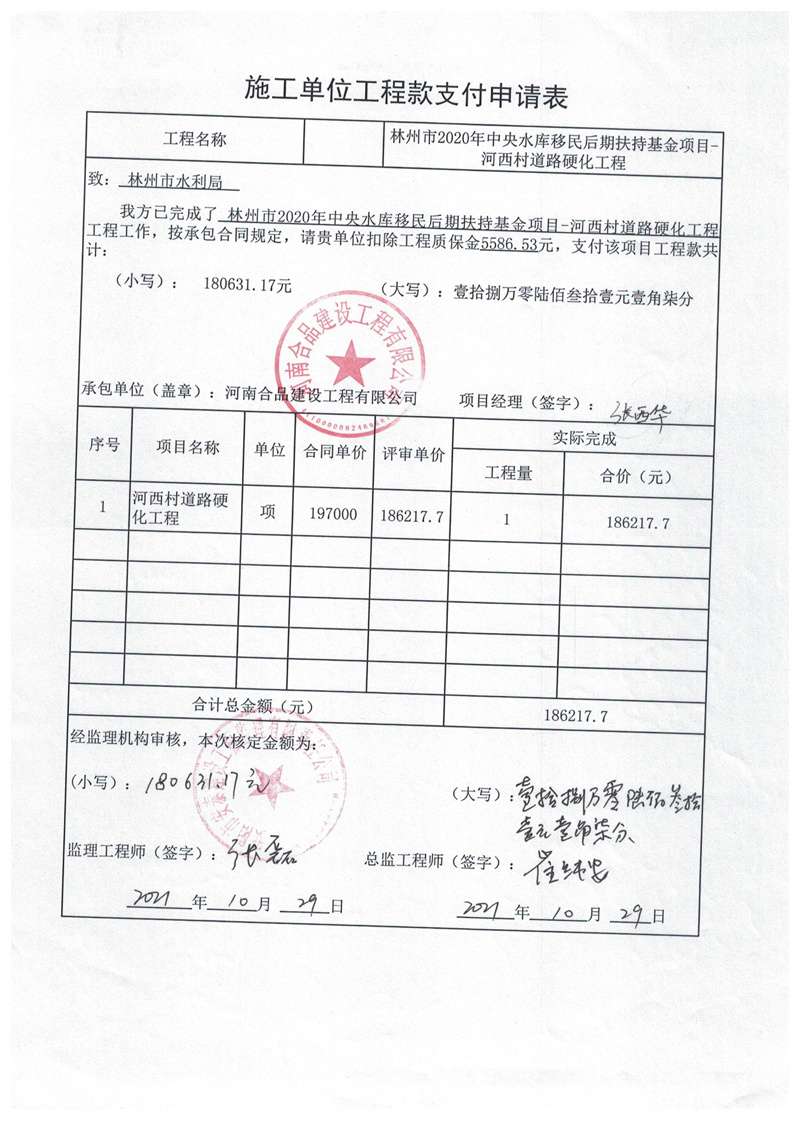 施工单位工程款支付申请表
工程名称
林州市2020年中央水库移民后期扶持基金项目-
河西村道路硬化工程
致：林州市水利局
我方已完成了 林州市2020年中央水库移民后期扶持基金项目-河西村道路硬化工程
工程工作，按承包合同规定，请贵单位扣除工程质保金5586.53元，支付该项目工程款共
计：
（小写）： 180631.17元 （大写）：壹拾捌万零陆佰叁拾壹元壹角柒分
河南合品建设工程有限公司
承包单位（盖章）：河南合品建设工程有限公司 项目经理（签字）：张西华
序号 项目名称 单位 合同单价 评审单价 实际完成
工程量 合价（元）
1 河西村道路硬 项 197000 186217.7 1 186217.7
化工程
合计总金额（元） 186217.7
经监理机构审核，本次核定金额为：
(小写）：180631.17元 （大写）：壹拾捌万零陆佰叁拾
壹元壹角柒分
监理工程师（签字）：张磊 总监工程师（签字）：
2021 年 10 月 29 日 2021 年 10 月 29 日